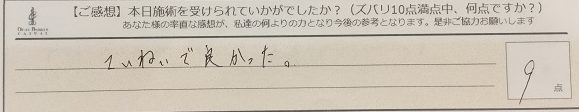 【ご感想】本日施術を受けられていかがでしたか？（ズバリ10点満点中、何点ですか？）
あなた様の率直な感想が、私達の何よりの力となり今後の参考となります。是非ご協力お願いします
ていねいで良かった。
9点